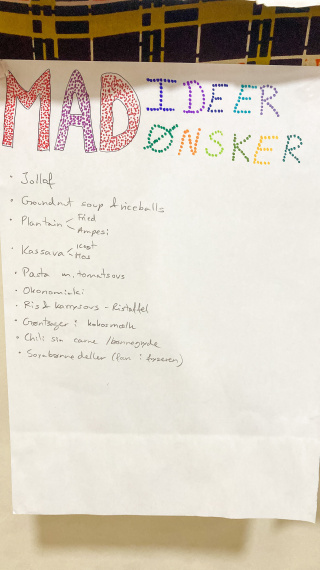 MAD IDEER
ØNSKER
• Jollof
• Groundnut soup & riceballs
• Plantain < Fried
Ampesi
• Kassava < kogt
Mos
• Pasta m. tomatsovs
• Okonomiaki
• Ris & karrysovs - Ristaffel
• Grøntsager i kokosmælk
• Chili sin carne / bønnegryde
• Sojabønnedeller (fan i fryseren)